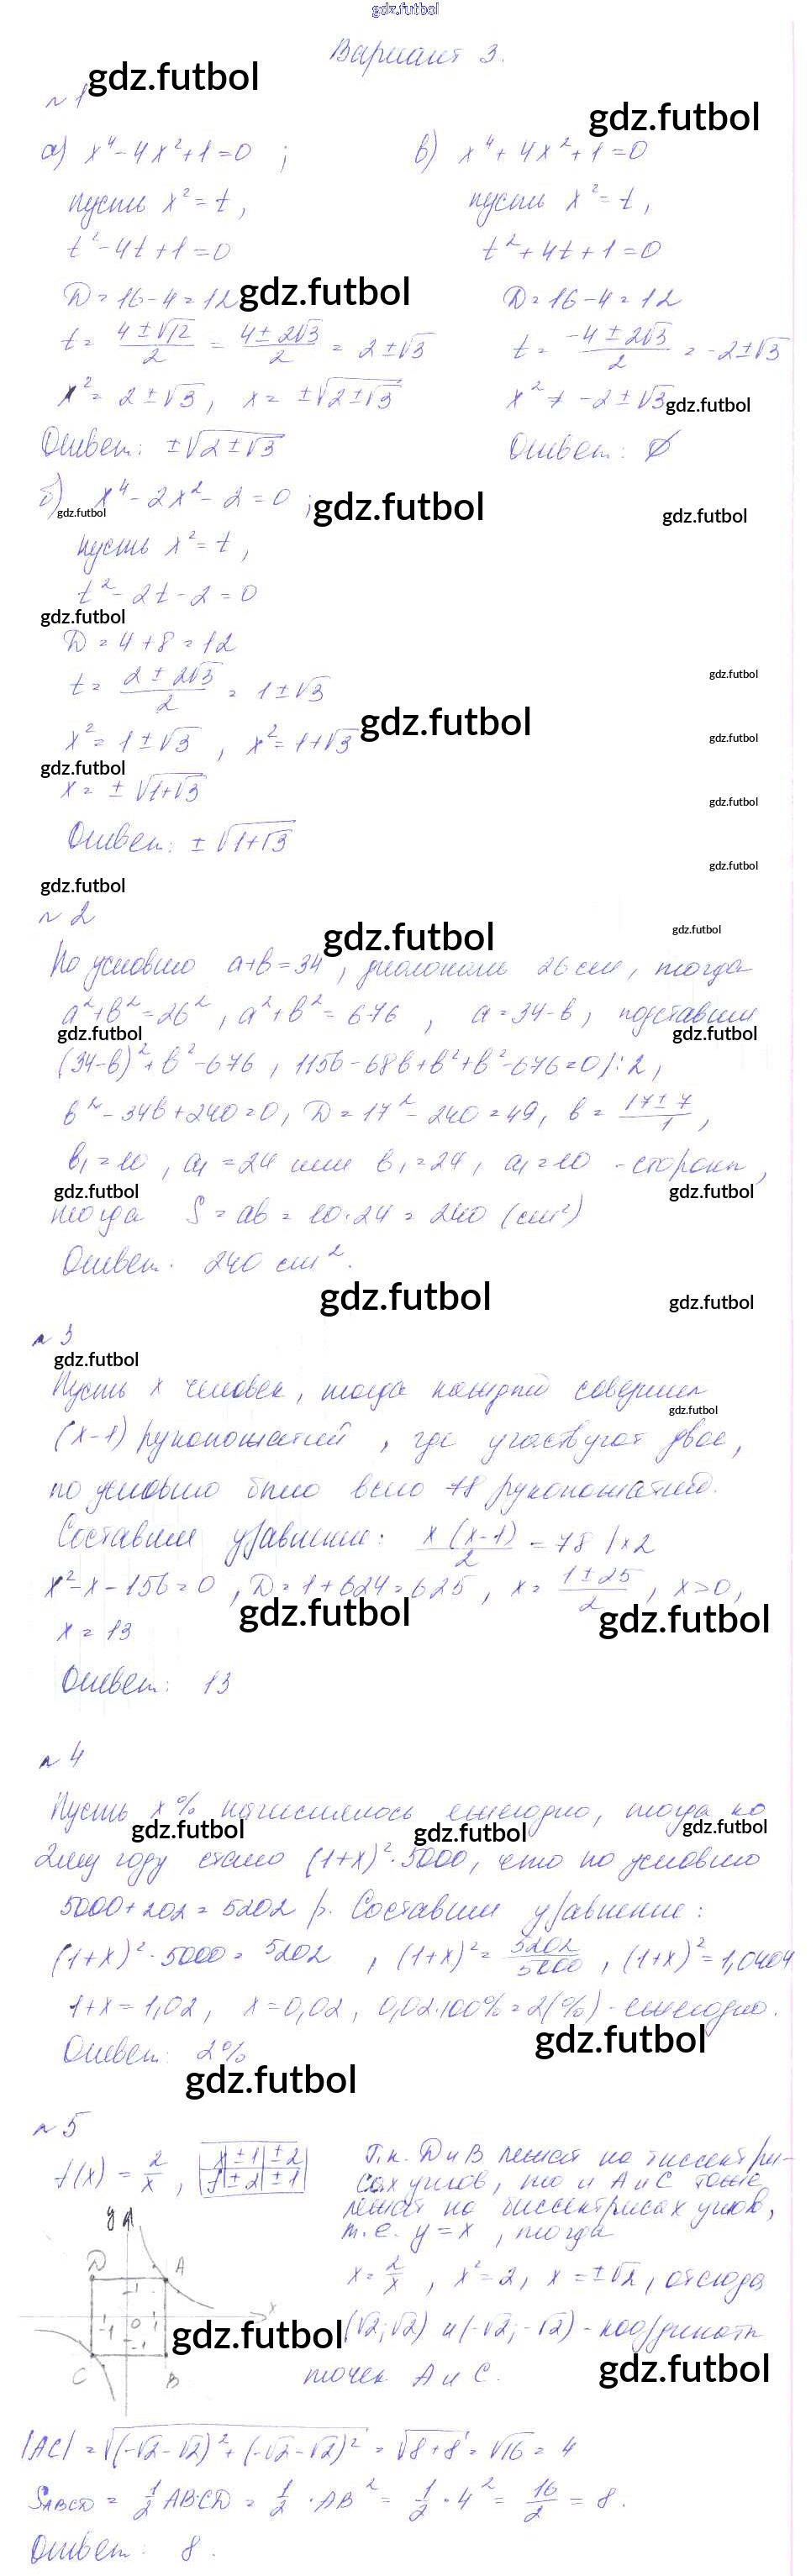 gdz.futbol
Вариант 3.
gdz.futbol
№ 1
gdz.futbol
а) x⁴ - 4x² + 1 = 0 ;
пусть x² = t,
t² - 4t + 1 = 0
D = 16 - 4 = 12
gdz.futbol
t = (4 ± √12)/2 = (4 ± 2√3)/2 = 2 ± √3
x² = 2 ± √3, x = ±√(2 ± √3)
Ответ: ±√(2 ± √3)
в) x⁴ + 4x² + 1 = 0
пусть x² = t,
t² + 4t + 1 = 0
D = 16 - 4 = 12
t = (-4 ± 2√3)/2 = -2 ± √3
x² ≠ -2 ± √3
gdz.futbol
Ответ: ∅
б) x⁴ - 2x² - 2 = 0 ;
gdz.futbol
gdz.futbol
gdz.futbol
пусть x² = t,
t² - 2t - 2 = 0
gdz.futbol
D = 4 + 8 = 12
t = (2 ± 2√3)/2 = 1 ± √3
gdz.futbol
x² = 1 ± √3, x² = 1 + √3
gdz.futbol
gdz.futbol
gdz.futbol
x = ± √(1+√3)
gdz.futbol
Ответ: ± √(1+√3)
gdz.futbol
gdz.futbol
№ 2
gdz.futbol
gdz.futbol
По условию a+b=34, диагональ 26 см, тогда
a²+b²=26², a²+b²=676, a=34-b, подставим
gdz.futbol
gdz.futbol
(34-b)²+b²-676, 1156-68b+b²+b²-676=0 |:2,
b²-34b+240=0, D=17²-240=49, b=(17±7)/1,
b₁=10, a₁=24 или b₁=24, a₁=10 - стороны,
gdz.futbol
gdz.futbol
тогда S = ab = 10·24 = 240 (см²)
Ответ: 240 см².
gdz.futbol
gdz.futbol
№ 3
gdz.futbol
Пусть x человек, тогда каждый совершил
gdz.futbol
(x-1) рукопожатий, где участвуют двое,
по условию было всего 78 рукопожатий.
Составим уравнение: x(x-1)/2 = 78 |×2
x²-x-156=0, D=1+624=625, x=(1±25)/2, x>0,
gdz.futbol
gdz.futbol
x = 13
Ответ: 13
№ 4
Пусть x% начислялось ежегодно, тогда ко
gdz.futbol
gdz.futbol
gdz.futbol
2му году стало (1+x)²·5000, что по условию
5000+202=5202 р. Составим уравнение:
(1+x)²·5000=5202, (1+x)²=5202/5000, (1+x)²=1,0404
1+x=1,02, x=0,02, 0,02·100%=2(%) - ежегодно.
gdz.futbol
Ответ: 2%
gdz.futbol
№ 5
f(x) = 2/x,
x | ±1 | ±2
f | ±2 | ±1
Т.к. D и B лежат на биссектри-
сах углов, то и A и C тоже
лежат на биссектрисах углов,
т.е. y = x, тогда
x = 2/x, x² = 2, x = ±√2, отсюда
(√2; √2) и (-√2; -√2) - координаты
точек A и C.
y
D
A
x
1
-1
0
1
-1
C
B
gdz.futbol
gdz.futbol
|AC| = √((-√2-√2)² + (-√2-√2)²) = √(8+8) = √16 = 4
S_ABCD = 1/2 AB·CD = 1/2 · AB² = 1/2 · 4² = 16/2 = 8.
Ответ: 8.